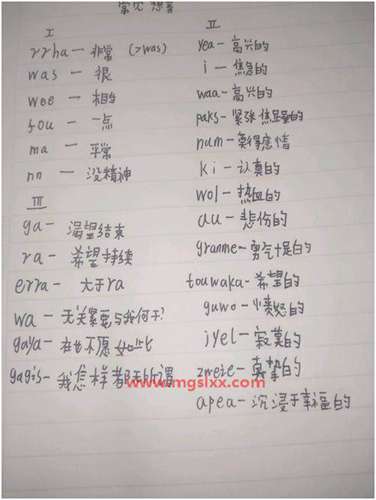 常见
I
rrha — 非常 (>was)
was — 很
wee — 相当
fou — 一点
ma — 平常
nn — 没精神
III
ga — 渴望结束
ra — 希望持续
erra — 大于ra
wa — 无关紧要与我何干?
gaya — 再也不愿如此
gagis — 我怎样都无所谓
II
yea — 高兴的
i — 焦急的
waa — 高兴的
paks — 紧张 焦虑的
num — 莫得感情
ki — 认真的
wol — 热血的
au — 悲伤的
granme — 勇气十足的
touwaka — 希望的
guwo — 愤怒的
iyel — 寂寞的
zweie — 真挚的
apea — 沉浸于幸福的
www.mgslxx.com